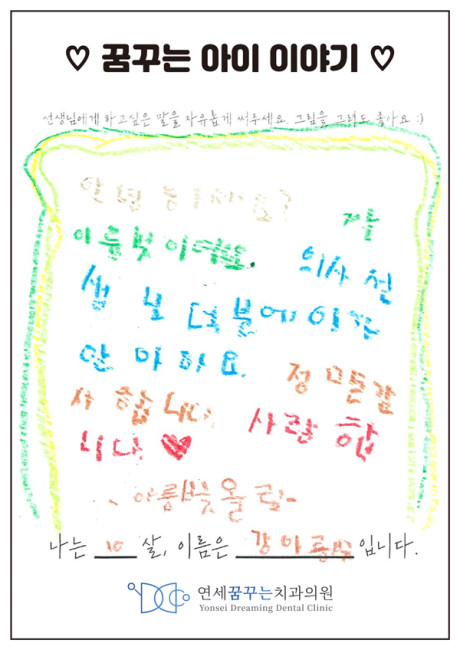 ♡ 꿈꾸는 아이 이야기 ♡
선생님에게 하고싶은 말을 자유롭게 써주세요. 그림을 그려도 좋아요 :)
안녕하세요? 저는
아름빛이에요. 의사 선
생님 덕분에 이가
안 아파요. 정말감
사합니다. 사랑합
니다 ♥
아름빛올림-
나는 10 살, 이름은 강아름빛 입니다.
연세꿈꾸는치과의원
Yonsei Dreaming Dental Clinic